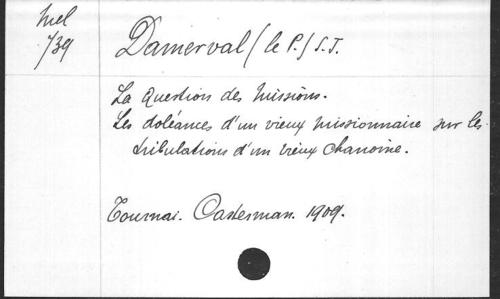 Mel
/39
Damerval (le P.) S.J.
La Question des Missions.
Les doléances d'un vieux missionnaire sur les
tribulations d'un vieux Chanoine.
Tournai. Casterman. 1909.